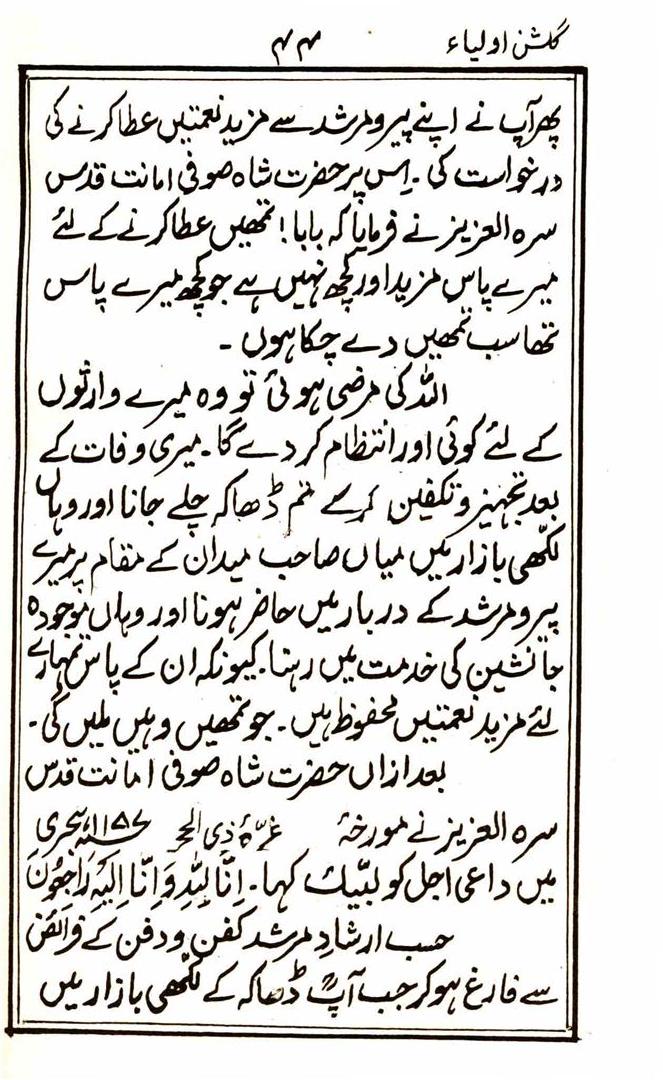 گلشن اولیاء ۴۴
پھر آپ نے اپنے پیرو مرشد سے مزید نعمتیں عطا کرنے کی
درخواست کی۔ اِس پر حضرت شاہ صوفی امانت قدس
سرہ العزیز نے فرمایا کہ بابا! تمھیں عطا کرنے کے لئے
میرے پاس مزید اور کچھ نہیں ہے جو کچھ میرے پاس
تھا سب تمھیں دے چکا ہوں ۔
اللہ کی مرضی ہوئی تو وہ میرے وارثوں
کے لئے کوئی اور انتظام کر دے گا۔ میری وفات کے
بعد تجہیز و تکفین کرکے تم ڈھاکہ چلے جانا اور وہاں
لکھی بازار میں میاں صاحب میدان کے مقام پر میرے
پیرو مرشد کے دربار میں حاضر ہونا اور وہاں موجودہ
جانشین کی خدمت میں رہنا۔ کیونکہ ان کے پاس تمہارے
لئے مزید نعمتیں محفوظ ہیں۔ جو تمھیں وہیں ملیں گی۔
بعد ازاں حضرت شاہ صوفی امانت قدس
سرہ العزیز نے مورخۂ غرّۂ ذی الحجر ۱۱۸۷ ہجری
میں داعی اجل کو لبیک کہا۔ اِنَّا لِلّٰہِ وَاِنَّا اِلَیْہِ رَاجِعُوْنَ
حسب ارشادِ مرشد کفن و دفن کے فرائض
سے فارغ ہو کر جب آپؒ ڈھاکہ کے لکھی بازار میں